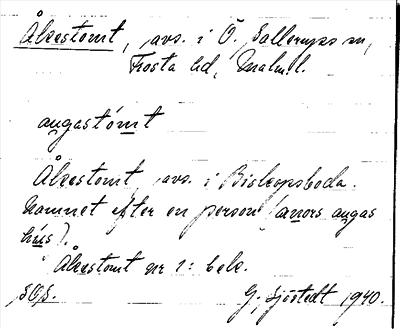 Åkestomt, avs. i Ö. Sallerups sn,
Frosta hd, Malm. l.
augastómt
Åkestomt, avs. i Biskopsboda.
Namnet efter en person (anors augas
hús).
Åkestomt nr 1: bek.
SOS. G. Sjöstedt 1940.